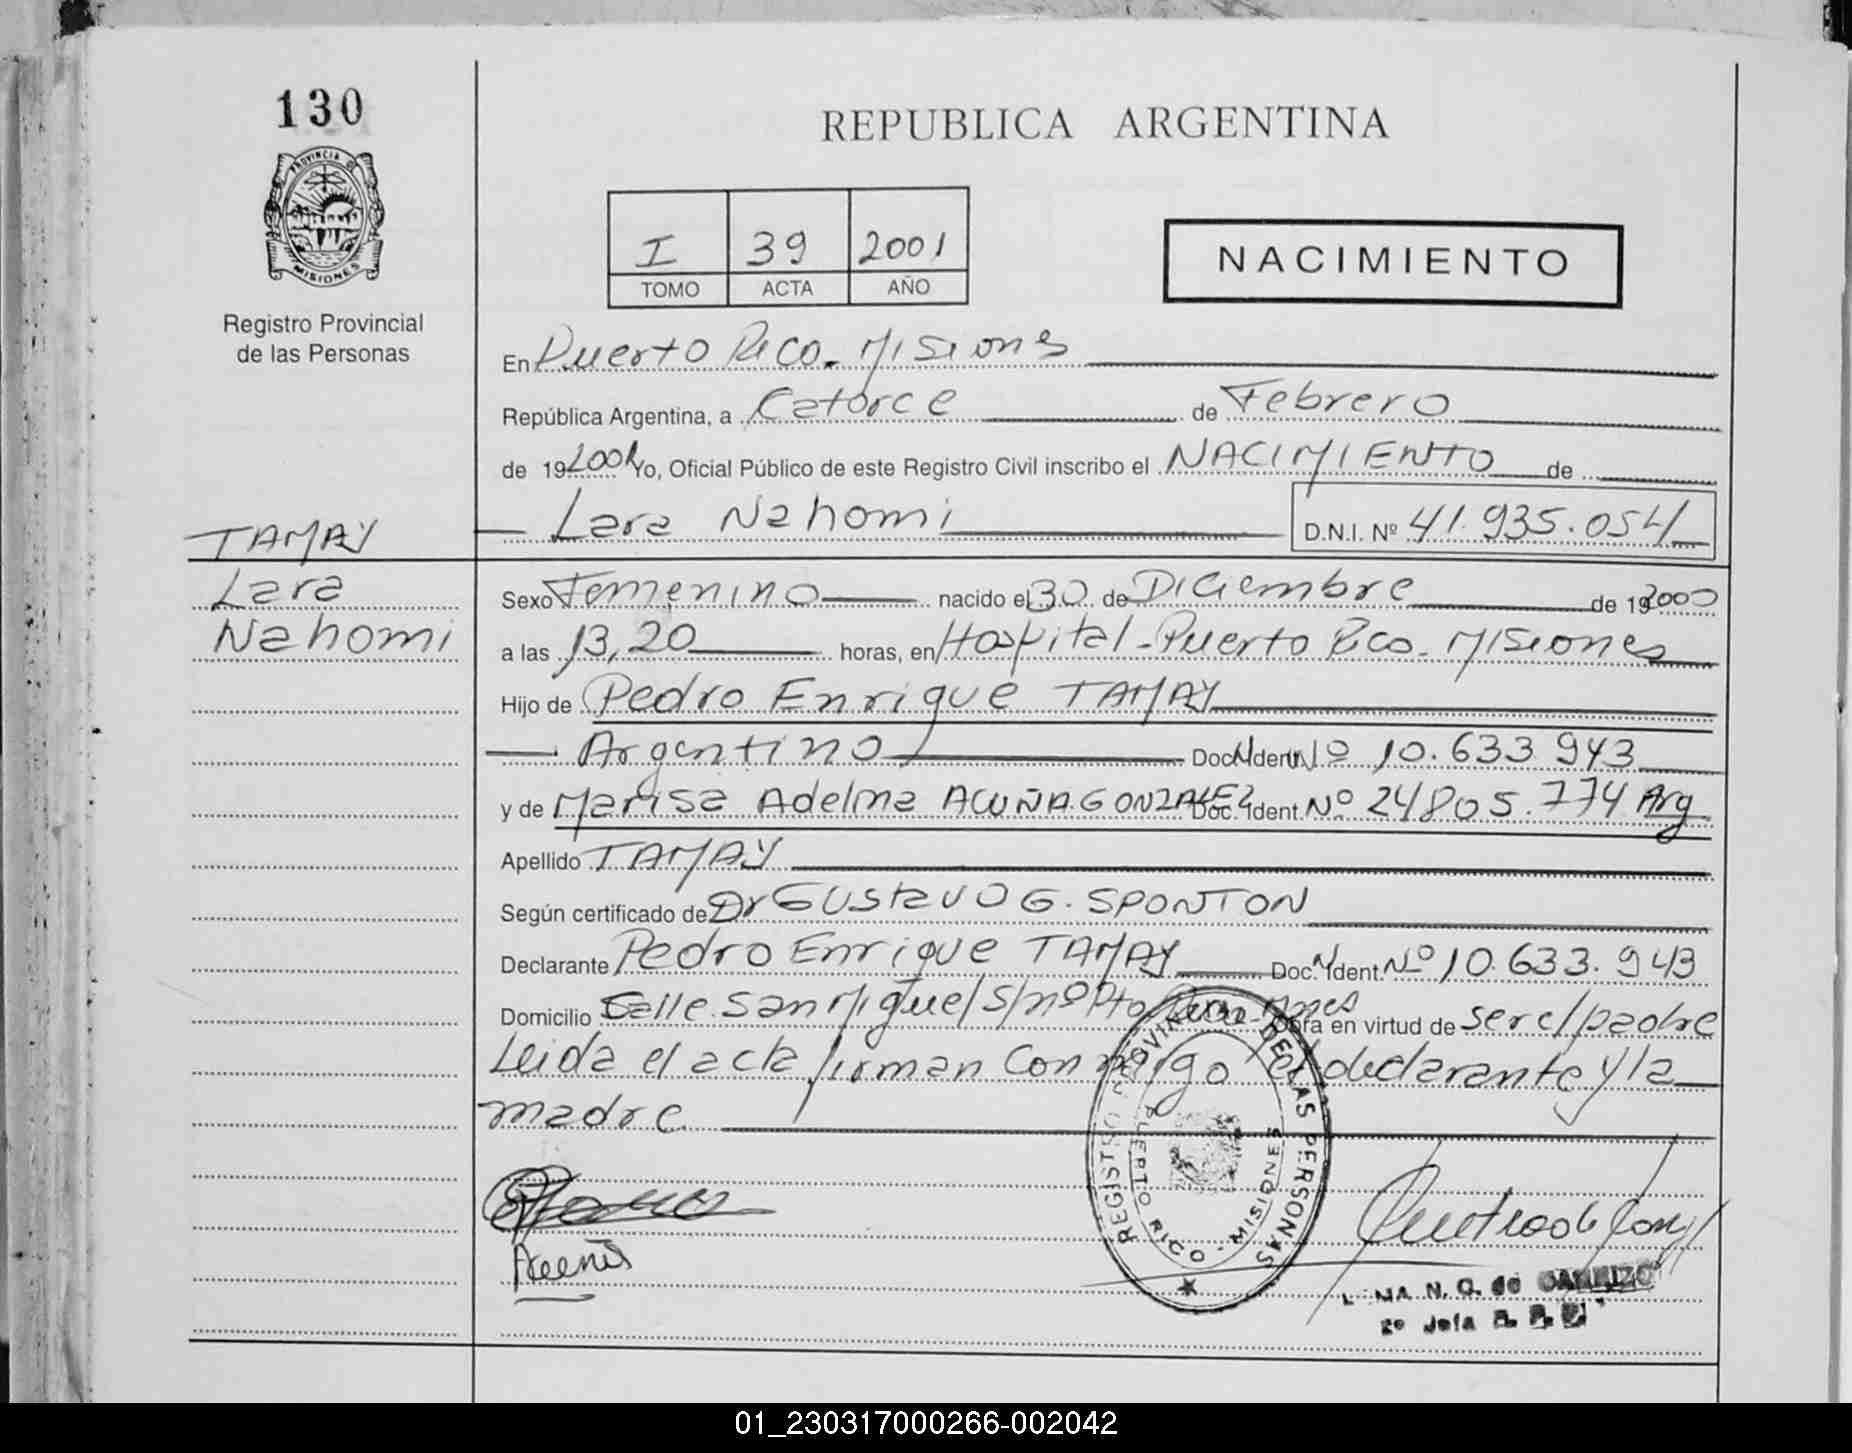 130
PROVINCIA DE
MISIONES
Registro Provincial
de las Personas
REPUBLICA ARGENTINA
I 39 2001
TOMO ACTA AÑO
NACIMIENTO
En Puerto Rico. Misiones
República Argentina, a Catorce de Febrero
de 192001 Yo, Oficial Público de este Registro Civil inscribo el NACIMIENTO de
Lara Nahomi D.N.I. Nº 41.935.054
TAMAY
Lara
Nahomi
Sexo Femenino nacido el 30 de Diciembre de 192000
a las 13,20 horas, en Hospital-Puerto Rico. Misiones
Hijo de Pedro Enrique TAMAY
Argentino Doc. Ident. Nº 10.633.943
y de Marisa Adelma ACUÑA GONZALEZ Doc. Ident. Nº 24805.774 Arg
Apellido TAMAY
Según certificado de Dr Gustavo G. SPONTON
Declarante Pedro Enrique TAMAY Doc. Ident. Nº 10.633.943
Domicilio Calle San Miguel S/nº Pto Obra en virtud de ser el padre
Leida el acta firman conmigo el declarante y la
madre
REGISTRO PROVINCIAL DE LAS PERSONAS
PUERTO RICO - MISIONES
N. G. de
2º Jefa
01_230317000266-002042